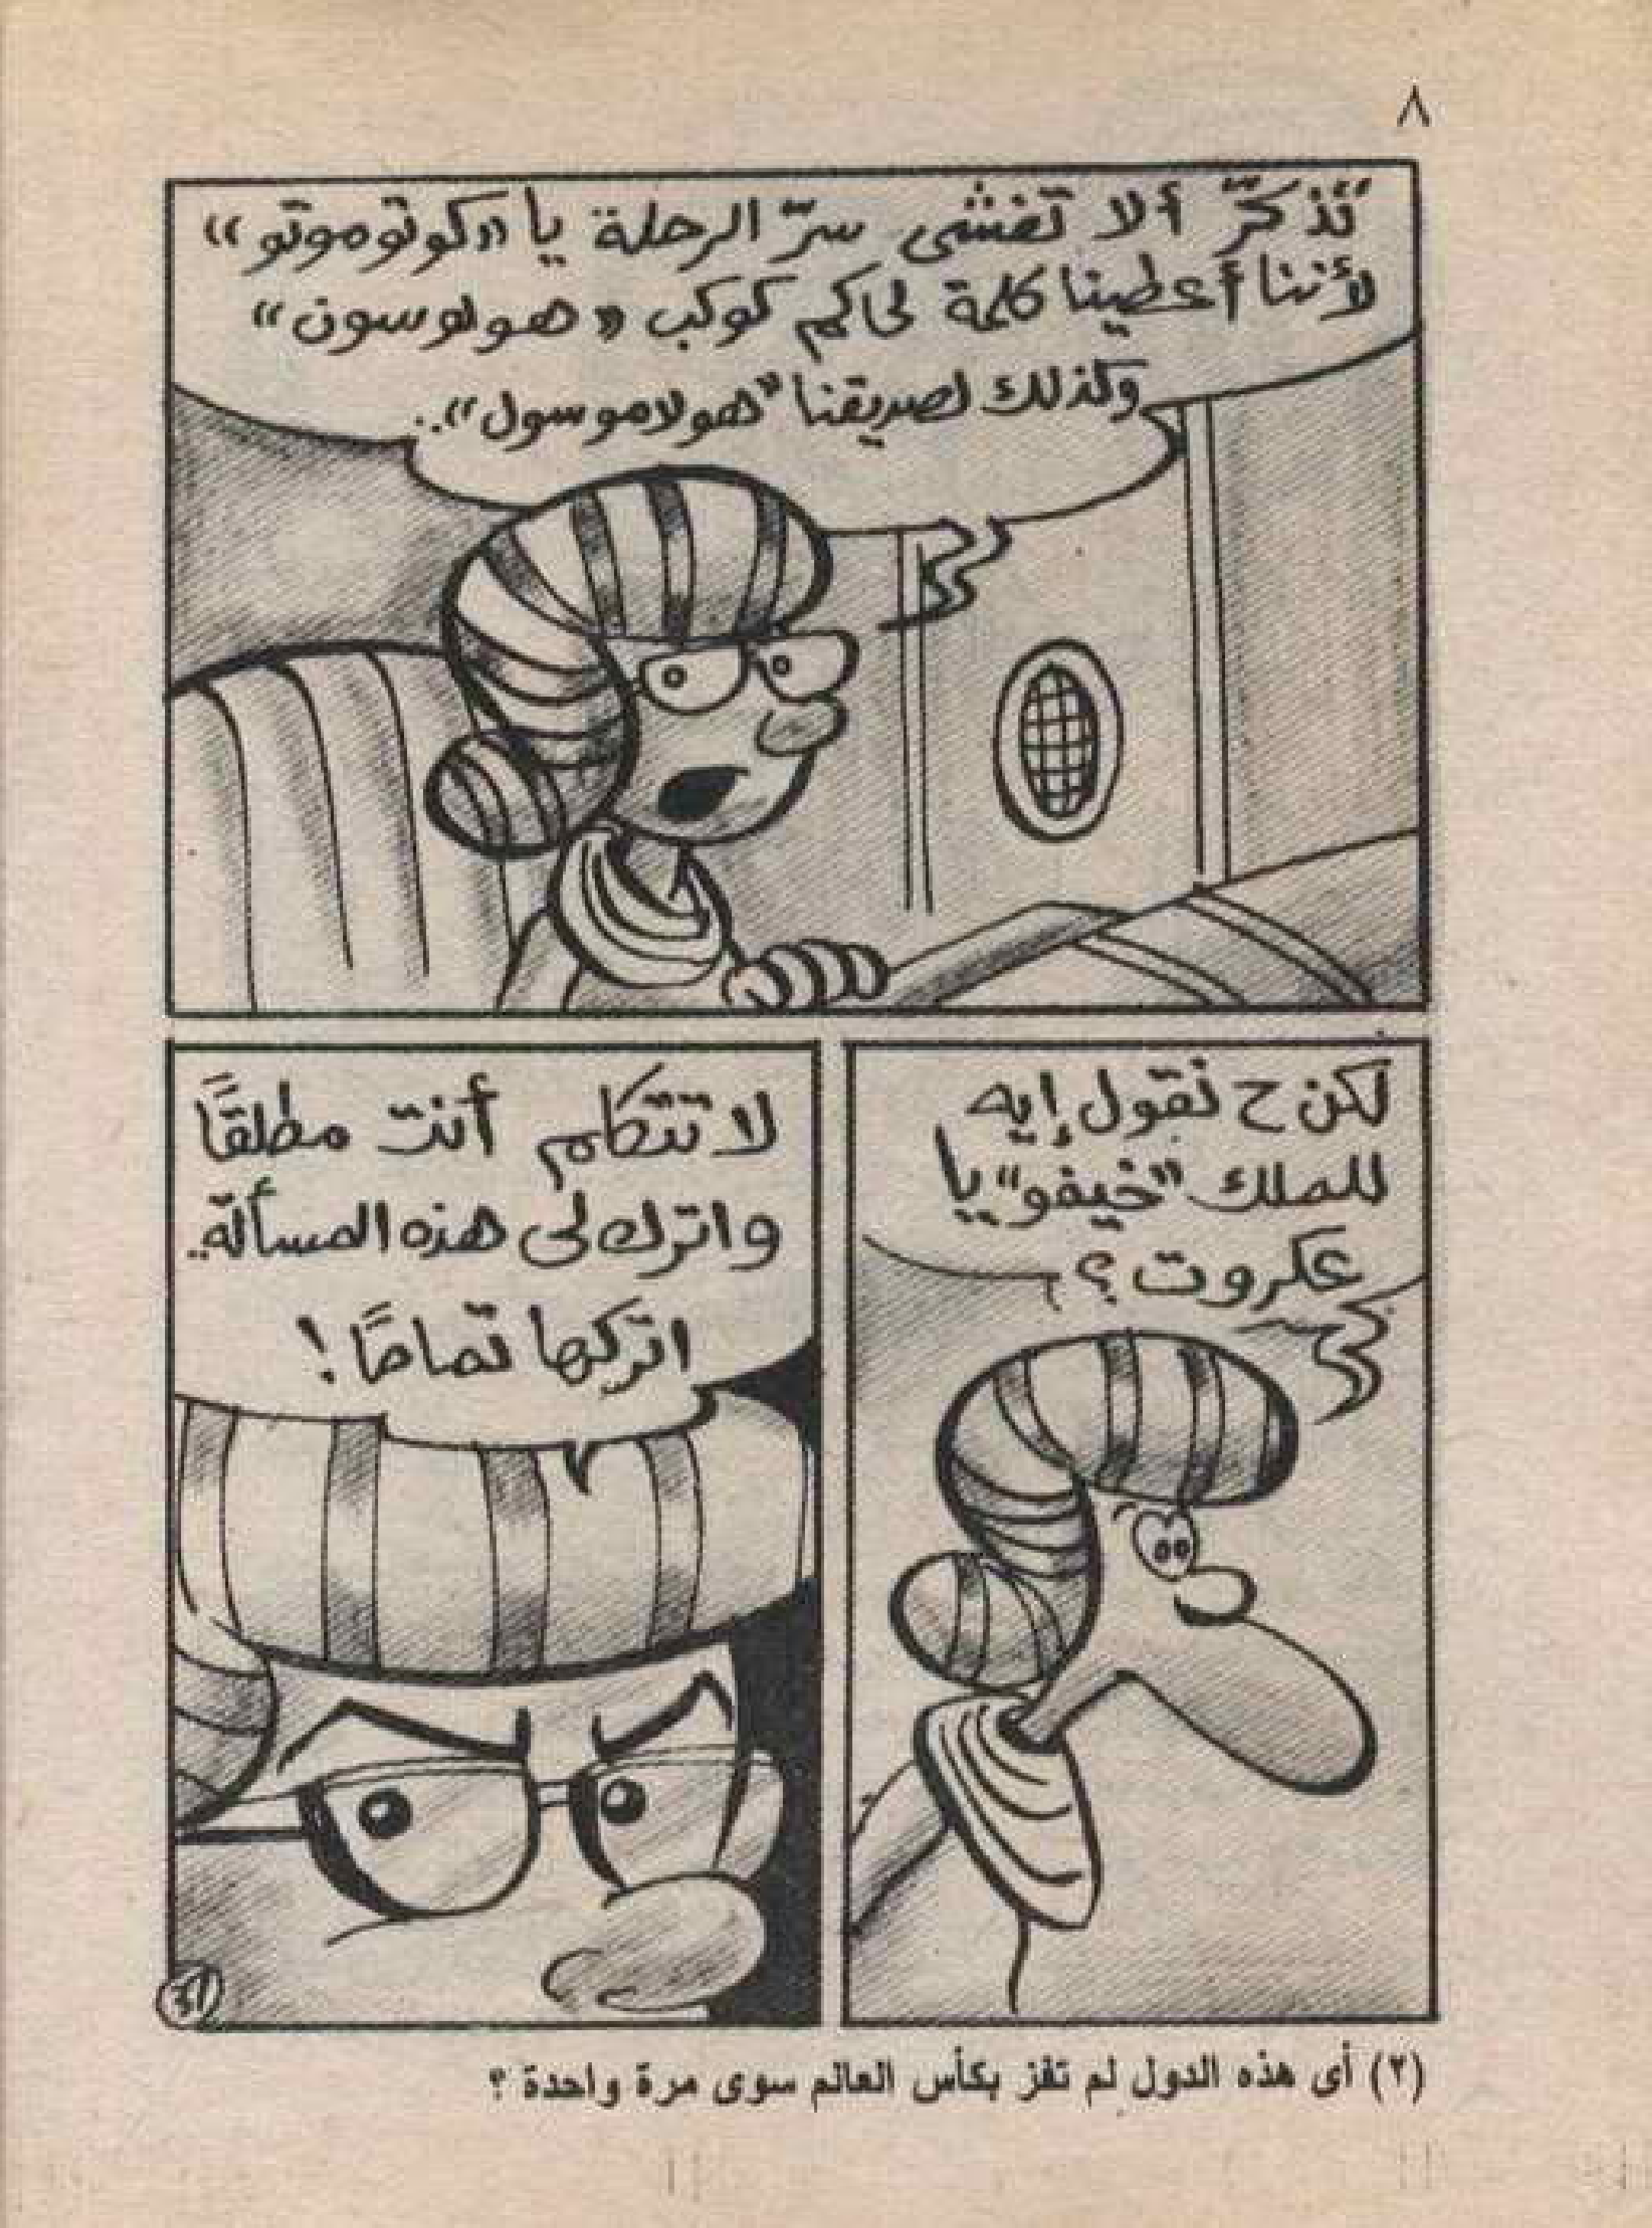 ٨
تذكّر ألا تفشى سرّ الرحلة يا «كوتوموتو»
لأننا أعطينا كلمة لحاكم كوكب «هولوسون»
وكذلك لصديقنا "هولاموسول"..
لكن ح نقول إيه
للملك "خيفو" يا
عكروت؟
لا تتكلم أنت مطلقًا
واترك لى هذه المسألة..
اتركها تمامًا!
(٢) أى هذه الدول لم تفز بكأس العالم سوى مرة واحدة ؟